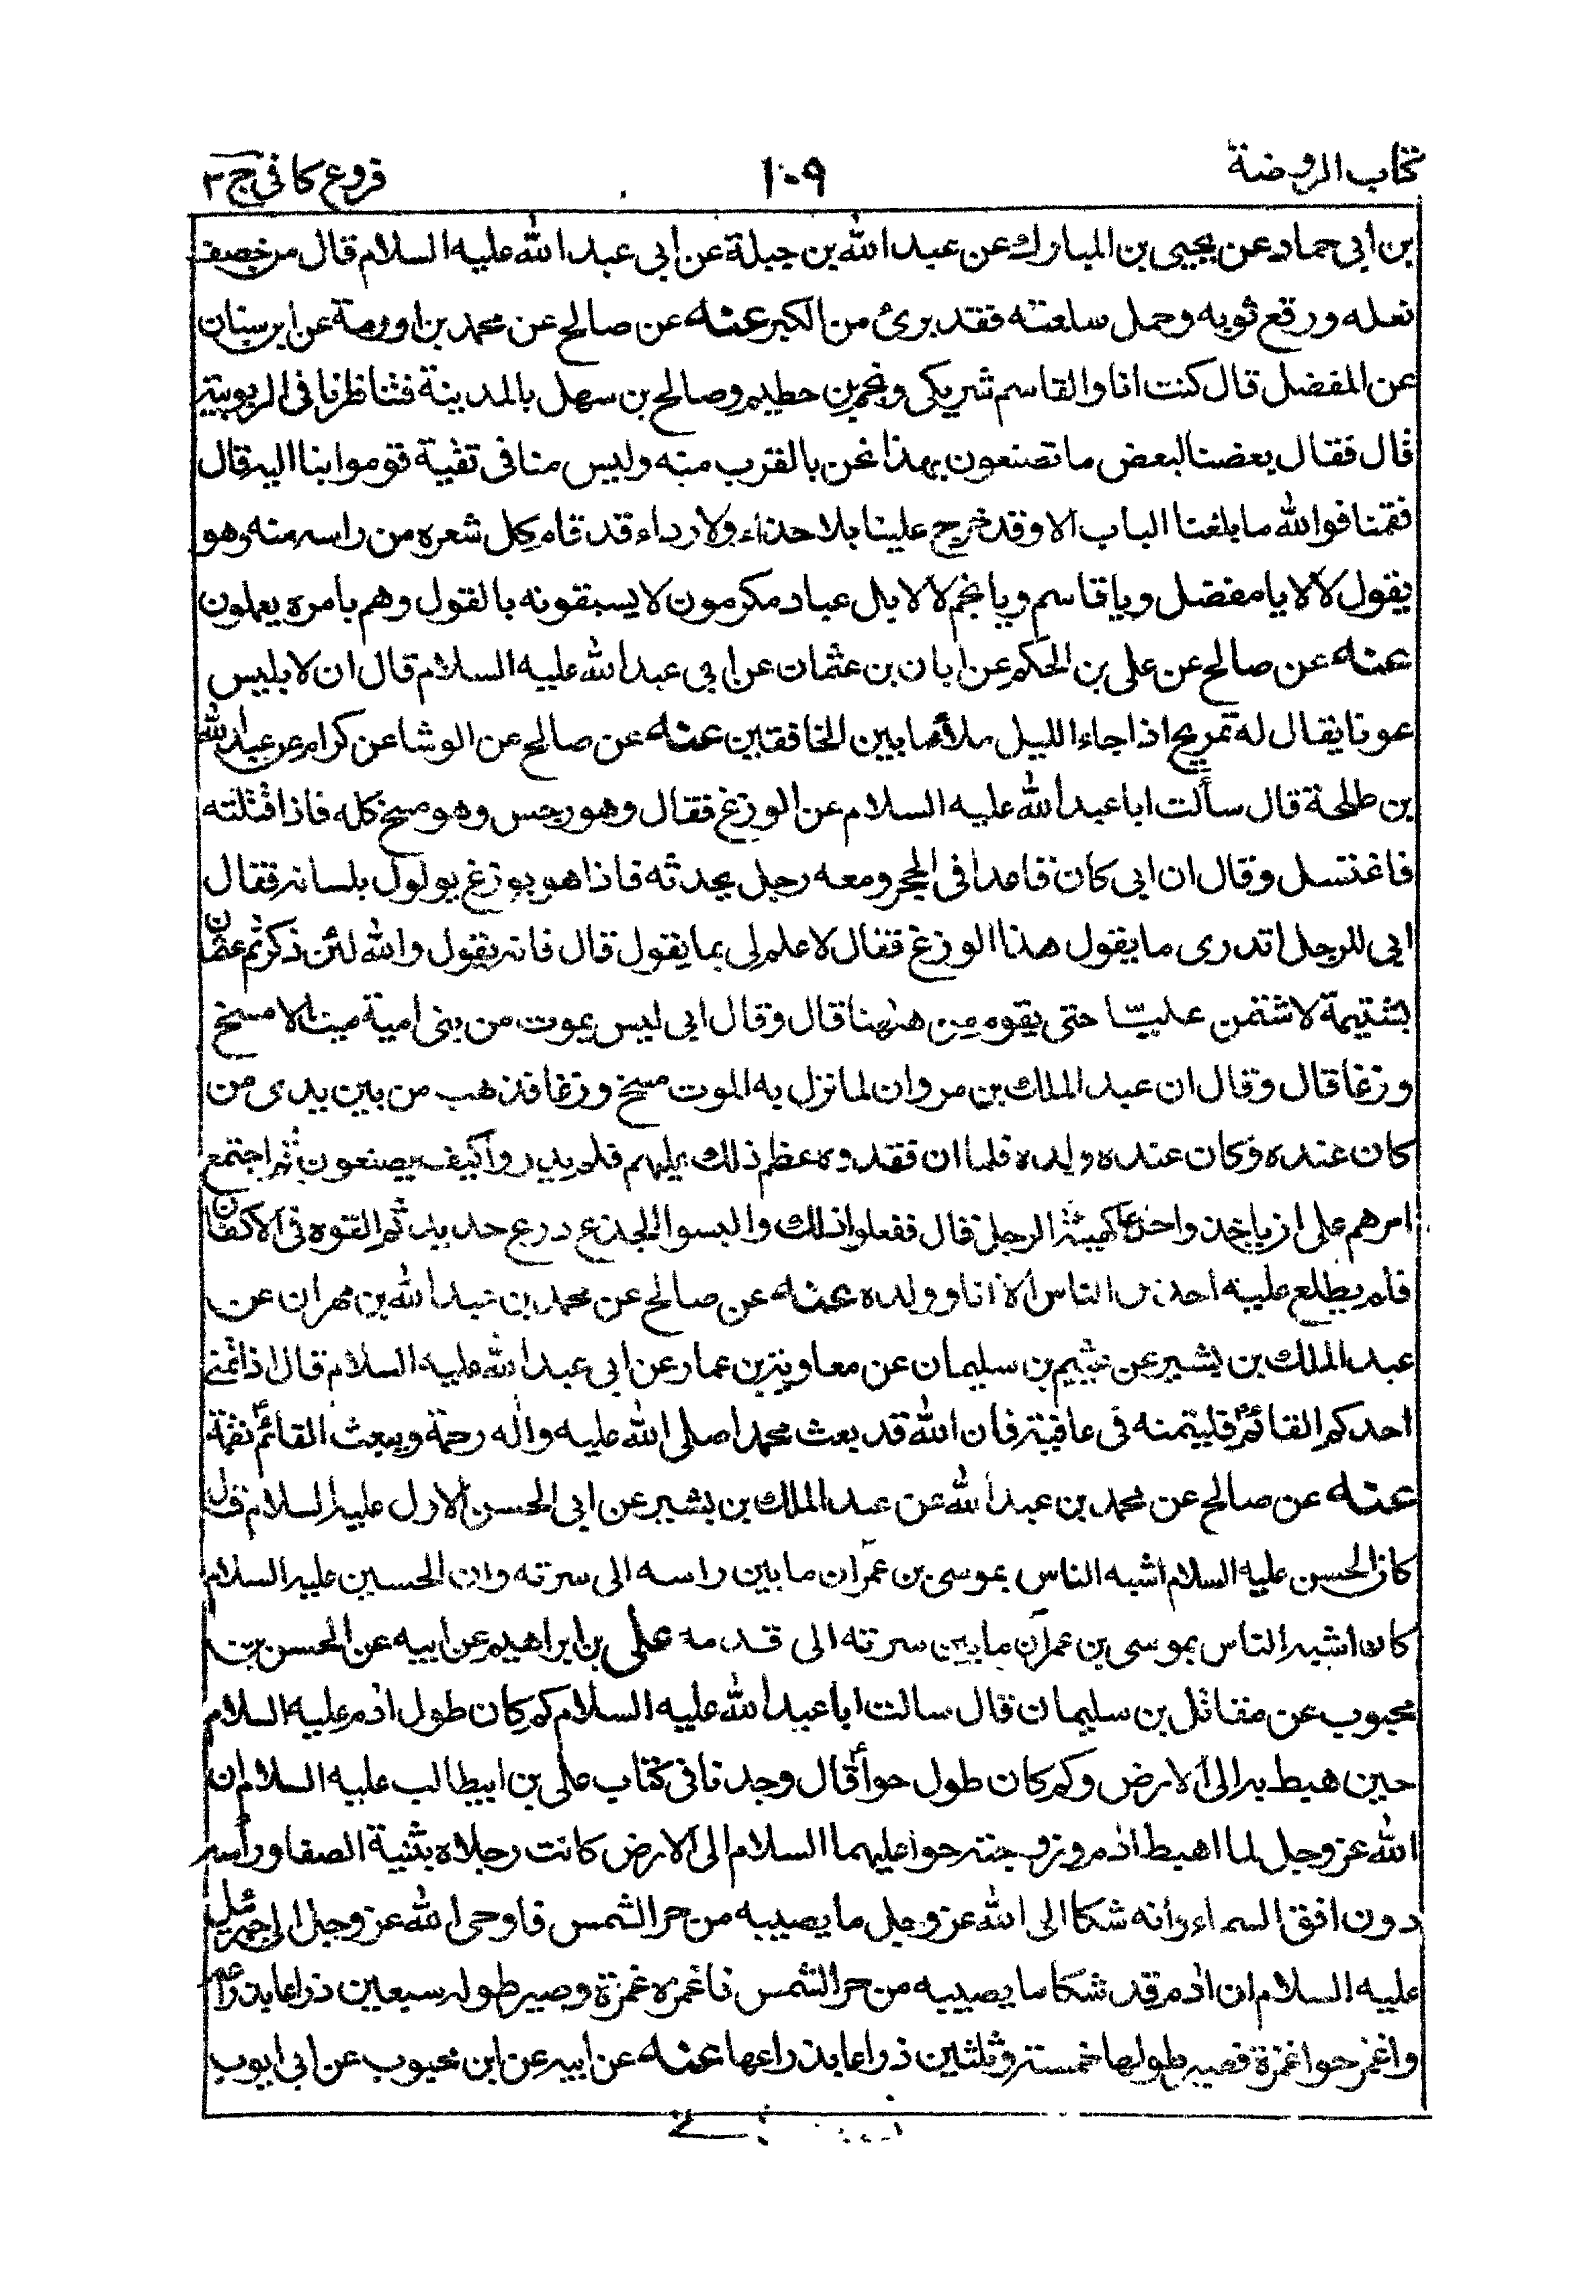 كتاب الروضة ١٠٩ فروع كافي ج ٣
بن أبي حماد عن يحيى بن المبارك عن عبد الله بن جبلة عن أبي عبد الله عليه السلام قال من خصف
نعله ورقع ثوبه وحمل سلعته فقد برئ من الكبر عنه عن صالح عن محمد بن اورمة عن ابن سنان
عن المفضل قال كنت انا والقاسم شريكي ونجم بن حطيم وصالح بن سهل بالمدينة فتناظرنا في الربوبية
قال فقال بعضنا لبعض ما تصنعون بهذا نحن بالقرب منه وليس منا في تقية قوموا بنا اليه قال
فقمنا فوالله ما بلغنا الباب الا وقد خرج علينا بلا حذاء ولا رداء قد قام كل شعره من راسه منه وهو
يقول لا لا يا مفضل ويا قاسم ويا نجم لا لا بل عباد مكرمون لا يسبقونه بالقول وهم بامره يعملون
عنه عن صالح عن علي بن الحكم عن ابان بن عثمان عن ابي عبد الله عليه السلام قال ان لابليس
عونا يقال له تمريح اذا جاء الليل ملأ ما بين الخافقين عنه عن صالح عن الوشا عن كرام عن عبد الله
بن طلحة قال سألت ابا عبد الله عليه السلام عن الوزغ فقال وهو رجس وهو مسخ كله فاذا قتلته
فاغتسل وقال ان ابي كان قاعدا في الحجر ومعه رجل يحدثه فاذا هو بوزغ يولول بلسانه فقال
ابي للرجل اتدري ما يقول هذا الوزغ فقال لا علم لي بما يقول قال فانه يقول والله لئن ذكرتم عثمان
بشتيمة لاشتمن عليّا حتى يقوم من ههنا قال وقال ابي ليس يموت من بني امية ميت الا مسخ
وزغا قال وقال ان عبد الملك بن مروان لما نزل به الموت مسخ وزغا فذهب من بين يدي من
كان عنده وكان عنده ولده فلما ان فقدوه عظم ذلك عليهم فلم يدروا كيف يصنعون ثم اجتمع
امرهم على ان ياخذوا جذعا كهيئة الرجل قال ففعلوا ذلك والبسوا الجذع درع حديد ثم القوه في الاكفان
فلم يطلع عليه احد من الناس الا انا وولده عنه عن صالح عن محمد بن عبد الله بن مهران عن
عبد الملك بن بشير عن عثيم بن سليمان عن معاوية بن عمار عن ابي عبد الله عليه السلام قال اذا تمنى
احدكم القائم فليتمنه في عافية فان الله قد بعث محمدا صلى الله عليه وآله رحمة ويبعث القائم نقمة
عنه عن صالح عن محمد بن عبد الله عن عبد الملك بن بشير عن ابي الحسن الاول عليه السلام قال
كان الحسن عليه السلام اشبه الناس بموسى بن عمران ما بين راسه الى سرته وان الحسين عليه السلام
كان اشبه الناس بموسى بن عمران ما بين سرته الى قدمه علي بن ابراهيم عن ابيه عن الحسن بن
محبوب عن مقاتل بن سليمان قال سالت ابا عبد الله عليه السلام كم كان طول ادم عليه السلام
حين هبط به الى الارض وكم كان طول حوا قال وجدنا في كتاب علي بن ابيطالب عليه السلام ان
الله عز وجل لما اهبط ادم وزوجته حوا عليهما السلام الى الارض كانت رجلاه بثنية الصفا ورأسه
دون افق السماء وأنه شكا الى الله عز وجل ما يصيبه من حر الشمس فاوحى الله عز وجل الى جبرئيل
عليه السلام ان ادم قد شكا ما يصيبه من حر الشمس فاغمزه غمزة وصير طوله سبعين ذراعا بذراعه
واغمز حوا غمزة فصير طولها خمسة وثلثين ذراعا بذراعها عنه عن أبيه عن ابن محبوب عن ابي ايوب